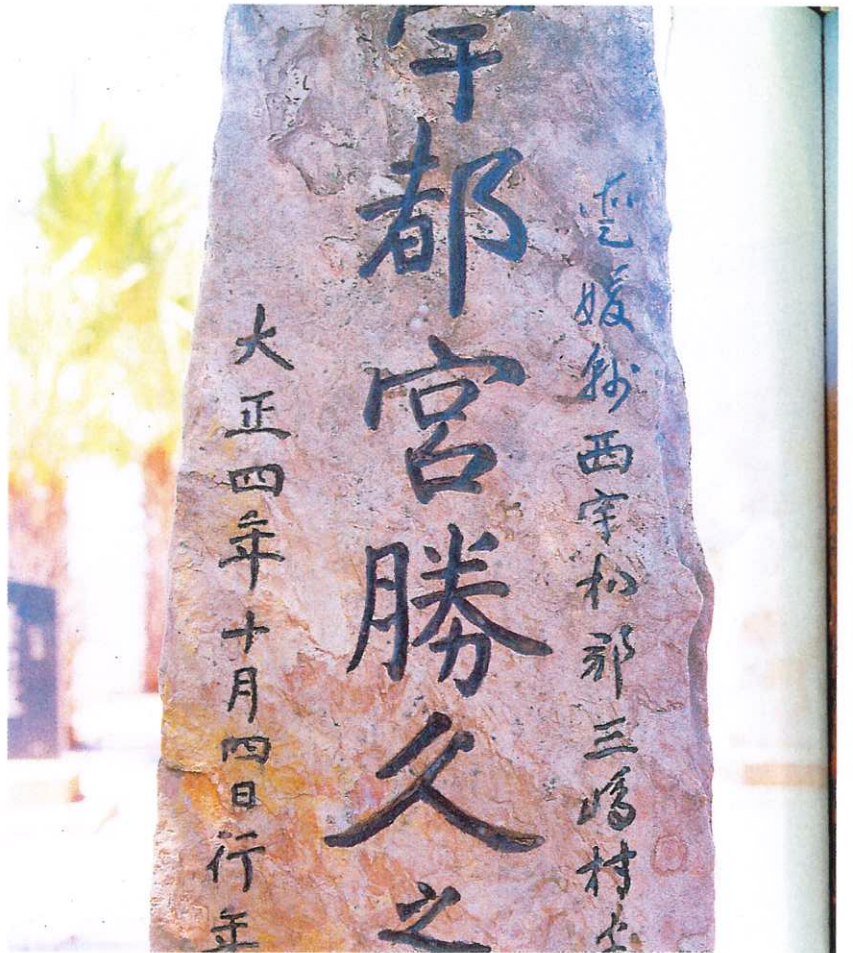 愛媛縣西宇和郡三嶋村
宇都宮勝久之
大正四年十月四日行年